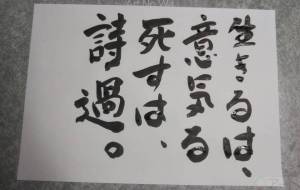 生きるは、
意気る
死すは、
詩過。